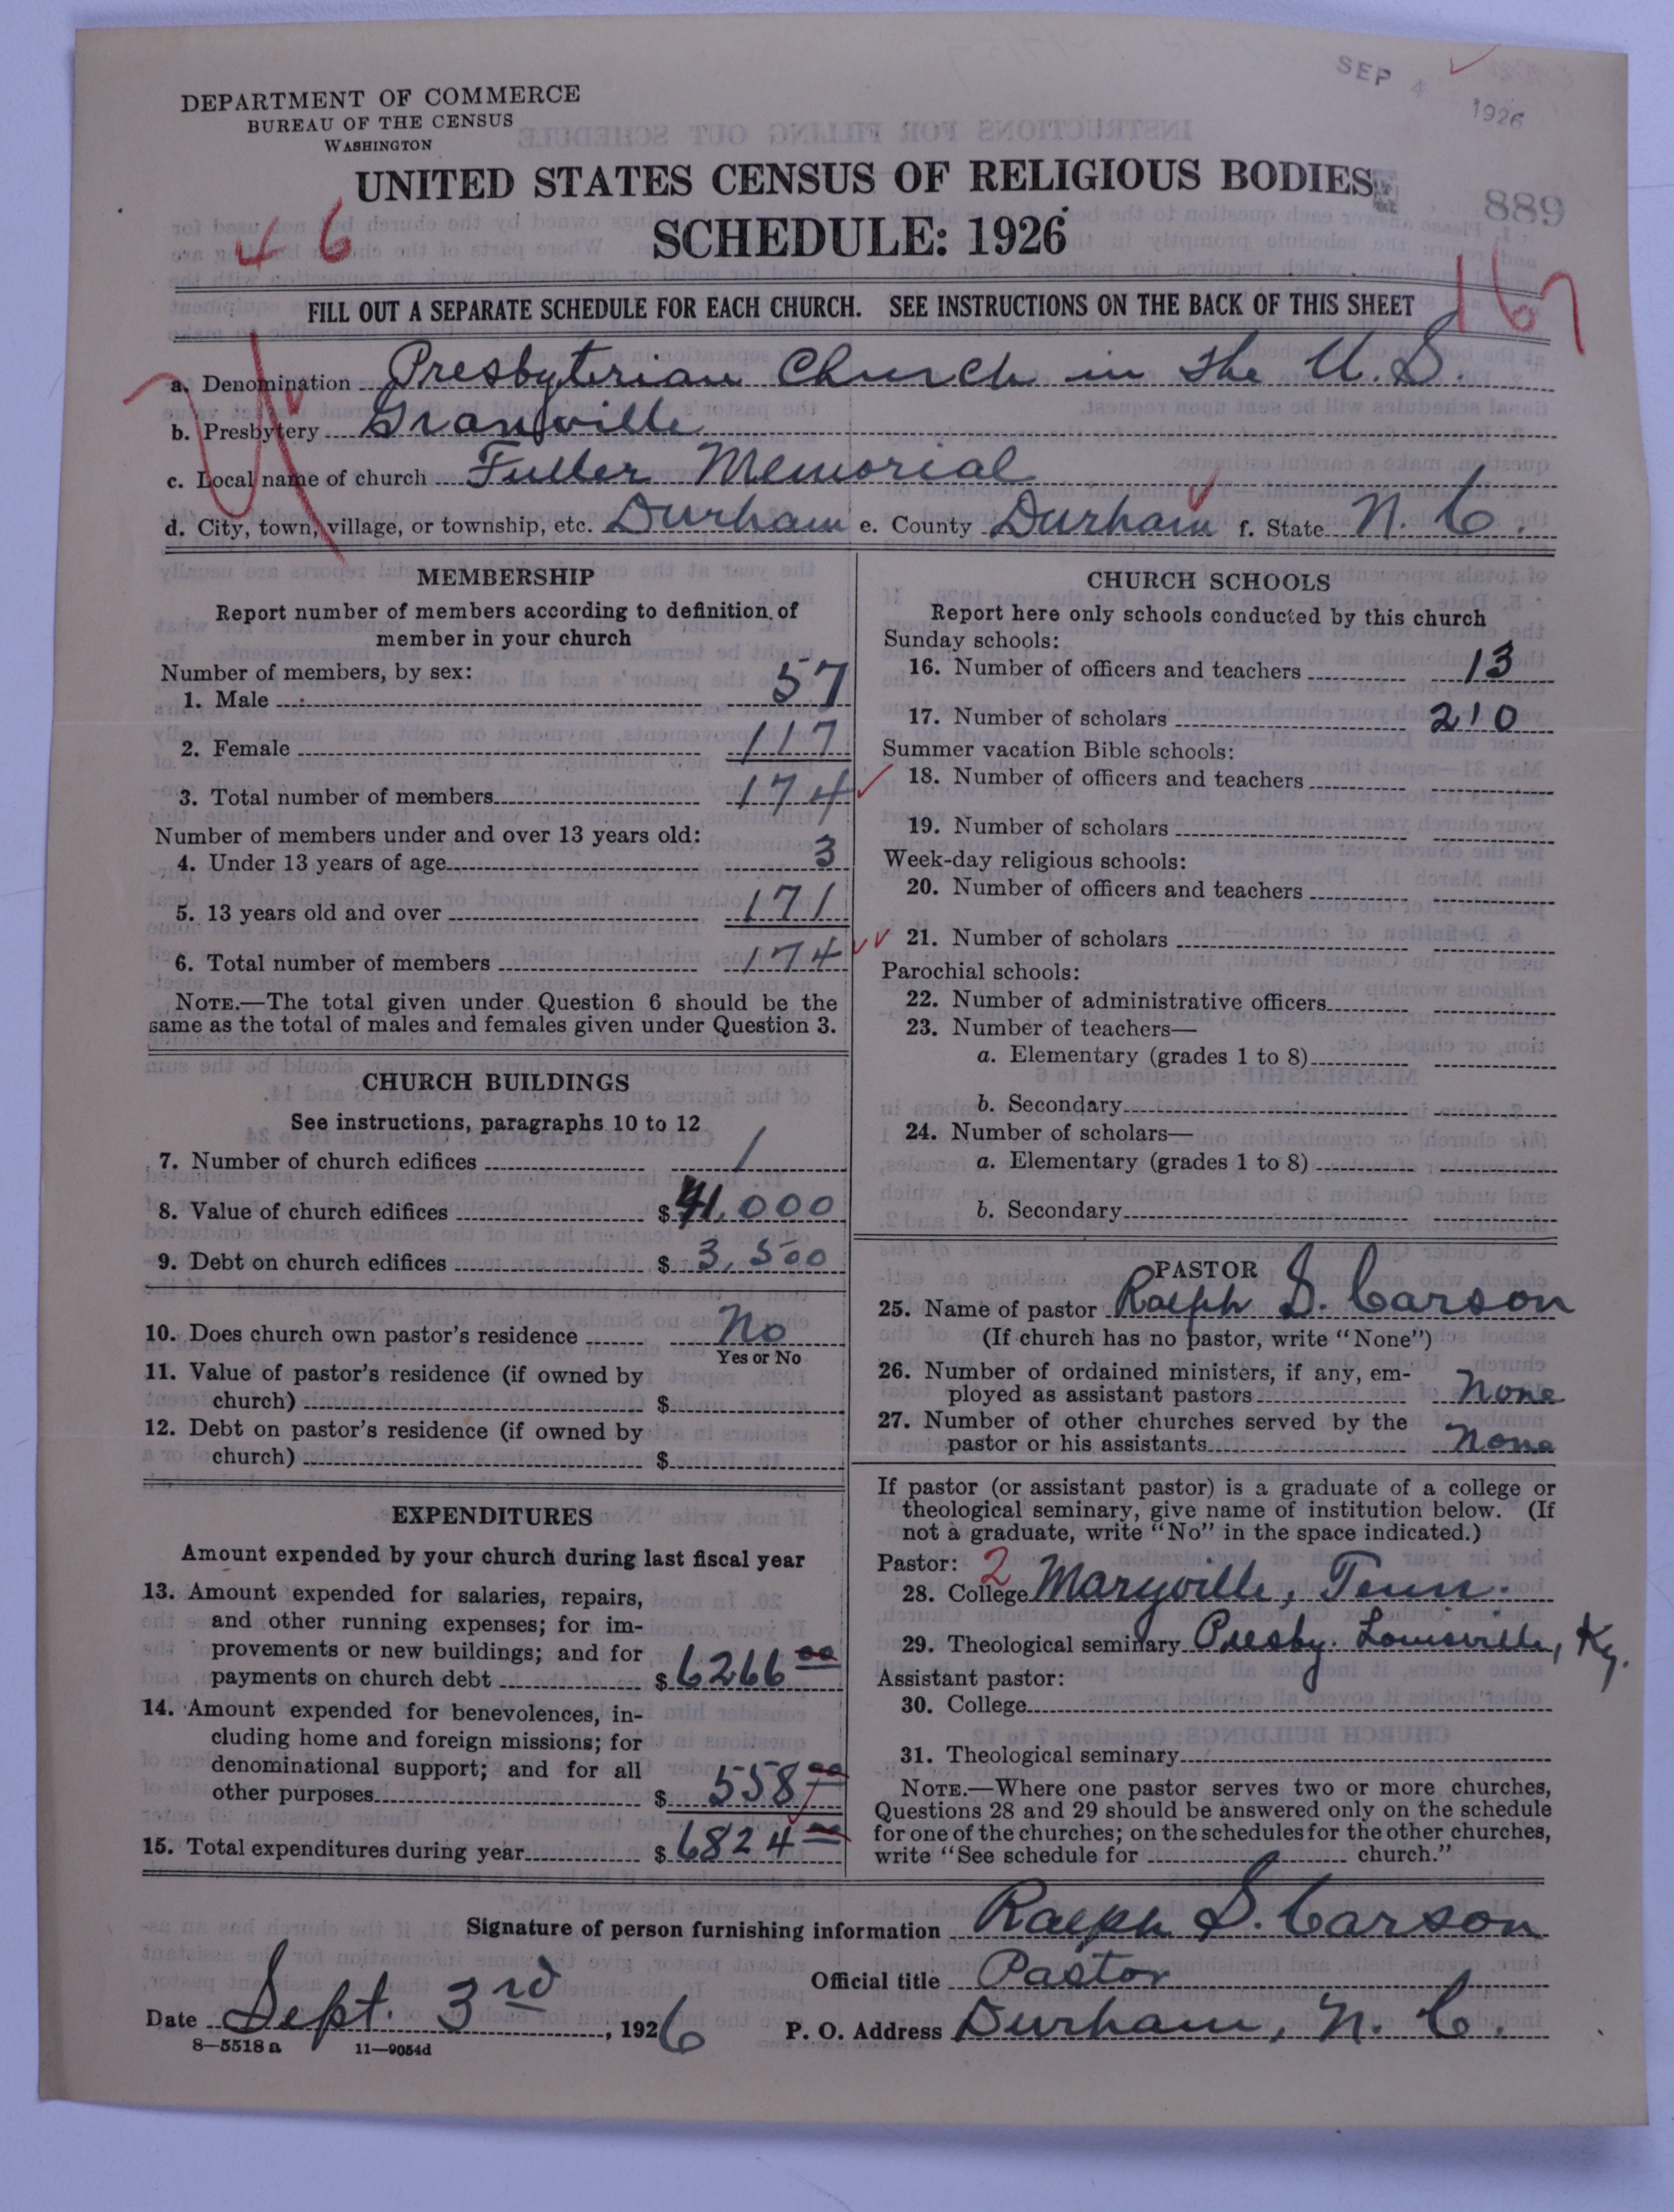 SEP 4 1926
DEPARTMENT OF COMMERCE
BUREAU OF THE CENSUS
WASHINGTON
UNITED STATES CENSUS OF RELIGIOUS BODIES
SCHEDULE: 1926
889
46
167
FILL OUT A SEPARATE SCHEDULE FOR EACH CHURCH. SEE INSTRUCTIONS ON THE BACK OF THIS SHEET
a. Denomination Presbyterian Church in the U. S.
b. Presbytery Granville
c. Local name of church Fuller Memorial
d. City, town, village, or township, etc. Durham e. County Durham f. State N. C.
MEMBERSHIP
Report number of members according to definition of
member in your church
Number of members, by sex:
1. Male 57
2. Female 117
3. Total number of members 174
Number of members under and over 13 years old:
4. Under 13 years of age 3
5. 13 years old and over 171
6. Total number of members 174
NOTE.—The total given under Question 6 should be the
same as the total of males and females given under Question 3.
CHURCH BUILDINGS
See instructions, paragraphs 10 to 12
7. Number of church edifices 1
8. Value of church edifices $41,000
9. Debt on church edifices $3,500
10. Does church own pastor's residence No
Yes or No
11. Value of pastor's residence (if owned by
church) $
12. Debt on pastor's residence (if owned by
church) $
EXPENDITURES
Amount expended by your church during last fiscal year
13. Amount expended for salaries, repairs,
and other running expenses; for im-
provements or new buildings; and for
payments on church debt $6266 00
14. Amount expended for benevolences, in-
cluding home and foreign missions; for
denominational support; and for all
other purposes $558 00
15. Total expenditures during year $6824 00
CHURCH SCHOOLS
Report here only schools conducted by this church
Sunday schools:
16. Number of officers and teachers 13
17. Number of scholars 210
Summer vacation Bible schools:
18. Number of officers and teachers
19. Number of scholars
Week-day religious schools:
20. Number of officers and teachers
21. Number of scholars
Parochial schools:
22. Number of administrative officers
23. Number of teachers—
a. Elementary (grades 1 to 8)
b. Secondary
24. Number of scholars—
a. Elementary (grades 1 to 8)
b. Secondary
PASTOR
25. Name of pastor Ralph S. Carson
(If church has no pastor, write "None")
26. Number of ordained ministers, if any, em-
ployed as assistant pastors None
27. Number of other churches served by the
pastor or his assistants None
If pastor (or assistant pastor) is a graduate of a college or
theological seminary, give name of institution below. (If
not a graduate, write "No" in the space indicated.)
Pastor: 2
28. College Maryville, Tenn.
29. Theological seminary Presby. Louisville, Ky.
Assistant pastor:
30. College
31. Theological seminary
NOTE.—Where one pastor serves two or more churches,
Questions 28 and 29 should be answered only on the schedule
for one of the churches; on the schedules for the other churches,
write "See schedule for church."
Signature of person furnishing information Ralph S. Carson
Official title Pastor
Date Sept. 3rd, 1926 P. O. Address Durham, N. C.
8—5518 a 11—9054d